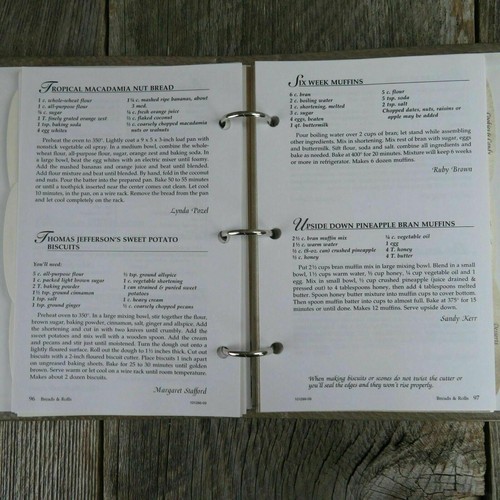 TROPICAL MACADAMIA NUT BREAD
1 c. whole-wheat flour
1 c. all-purpose flour
¾ c. sugar
1 T. finely grated orange zest
1 tsp. baking soda
4 egg whites
1½ c. mashed ripe bananas, about
3 med.
¼ c. fresh orange juice
½ c. flaked coconut
½ c. coarsely chopped macadamia
nuts or walnuts
Preheat the oven to 350°. Lightly coat a 9 x 5 x 3-inch loaf pan with
nonstick vegetable oil spray. In a medium bowl, combine the whole-
wheat flour, all-purpose flour, sugar, orange zest and baking soda. In
a large bowl, beat the egg whites with an electric mixer until foamy.
Add the mashed bananas and orange juice and beat until blended.
Add flour mixture and beat until blended. By hand, fold in the coconut
and nuts. Pour the batter into the prepared pan. Bake 50 to 55 minutes
or until a toothpick inserted near the center comes out clean. Let cool
10 minutes, in the pan, on a wire rack. Remove the bread from the pan
and let cool completely on the rack.
Lynda Pozel
THOMAS JEFFERSON'S SWEET POTATO
BISCUITS
You'll need:
5 c. all-purpose flour
1 c. packed light brown sugar
2 T. baking powder
1½ tsp. ground cinnamon
1 tsp. salt
1 tsp. ground ginger
½ tsp. ground allspice
1 c. vegetable shortening
2 c. pureed sweet
potatoes
1 c. heavy cream
½ c. coarsely chopped pecans
Preheat oven to 350°. In a large mixing bowl, stir together the flour,
brown sugar, baking powder, cinnamon, salt, ginger and allspice. Add
the shortening and cut in with two knives until crumbly. Add the
sweet potatoes and mix well with a wooden spoon. Add the cream
and pecans and stir just until moistened. Turn the dough out onto a
lightly floured surface. Roll out the dough to 1½ inches thick. Cut out
biscuits with a 2-inch floured biscuit cutter. Place biscuits 1 inch apart
on ungreased baking sheets. Bake for 25 to 30 minutes until golden
brown. Serve warm or let cool on a wire rack until room temperature.
Makes about 2 dozen biscuits.
Margaret Stafford
96 Breads & Rolls
SIX WEEK MUFFINS
6 c. bran
2 c. boiling water
1 c. shortening, melted
3 c. sugar
4 eggs, beaten
1 qt. buttermilk
5 c. flour
5 tsp. soda
2 tsp. salt
Chopped dates, nuts, raisins or
apple may be added
Pour boiling water over 2 cups of bran; let stand while assembling
other ingredients. Mix in shortening. Mix rest of bran with sugar, eggs
and buttermilk. Sift flour, soda and salt. combine all ingredients and
bake as needed. Bake at 400° for 20 minutes. Mixture will keep 6 weeks
or more in refrigerator. Makes 6 dozen muffins.
Ruby Brown
UPSIDE DOWN PINEAPPLE BRAN MUFFINS
2½ c. bran muffin mix
1½ c. warm water
½ c. (8-oz. can) crushed pineapple
½ c. honey
¼ c. vegetable oil
1 egg
4 T. honey
4 T. butter
Put 2½ cups bran muffin mix in large mixing bowl. Blend in a small
bowl, 1½ cups warm water, ½ cup honey, ¼ cup vegetable oil and 1
egg. Mix in small bowl, ½ cup crushed pineapple (drain juice &
pressed out) to 4 tablespoons honey, then add 4 tablespoons melted
butter. Spoon honey butter mixture into muffin cups to cover bottom.
Then spoon muffin batter into cups to almost full. Bake at 375° for 15
minutes or until done. Makes 12 muffins. Serve upside down.
Sandy Kerr
When making biscuits or scones do not twist the cutter or
you'll seal the edges and they won't rise properly.
Breads & Rolls 97